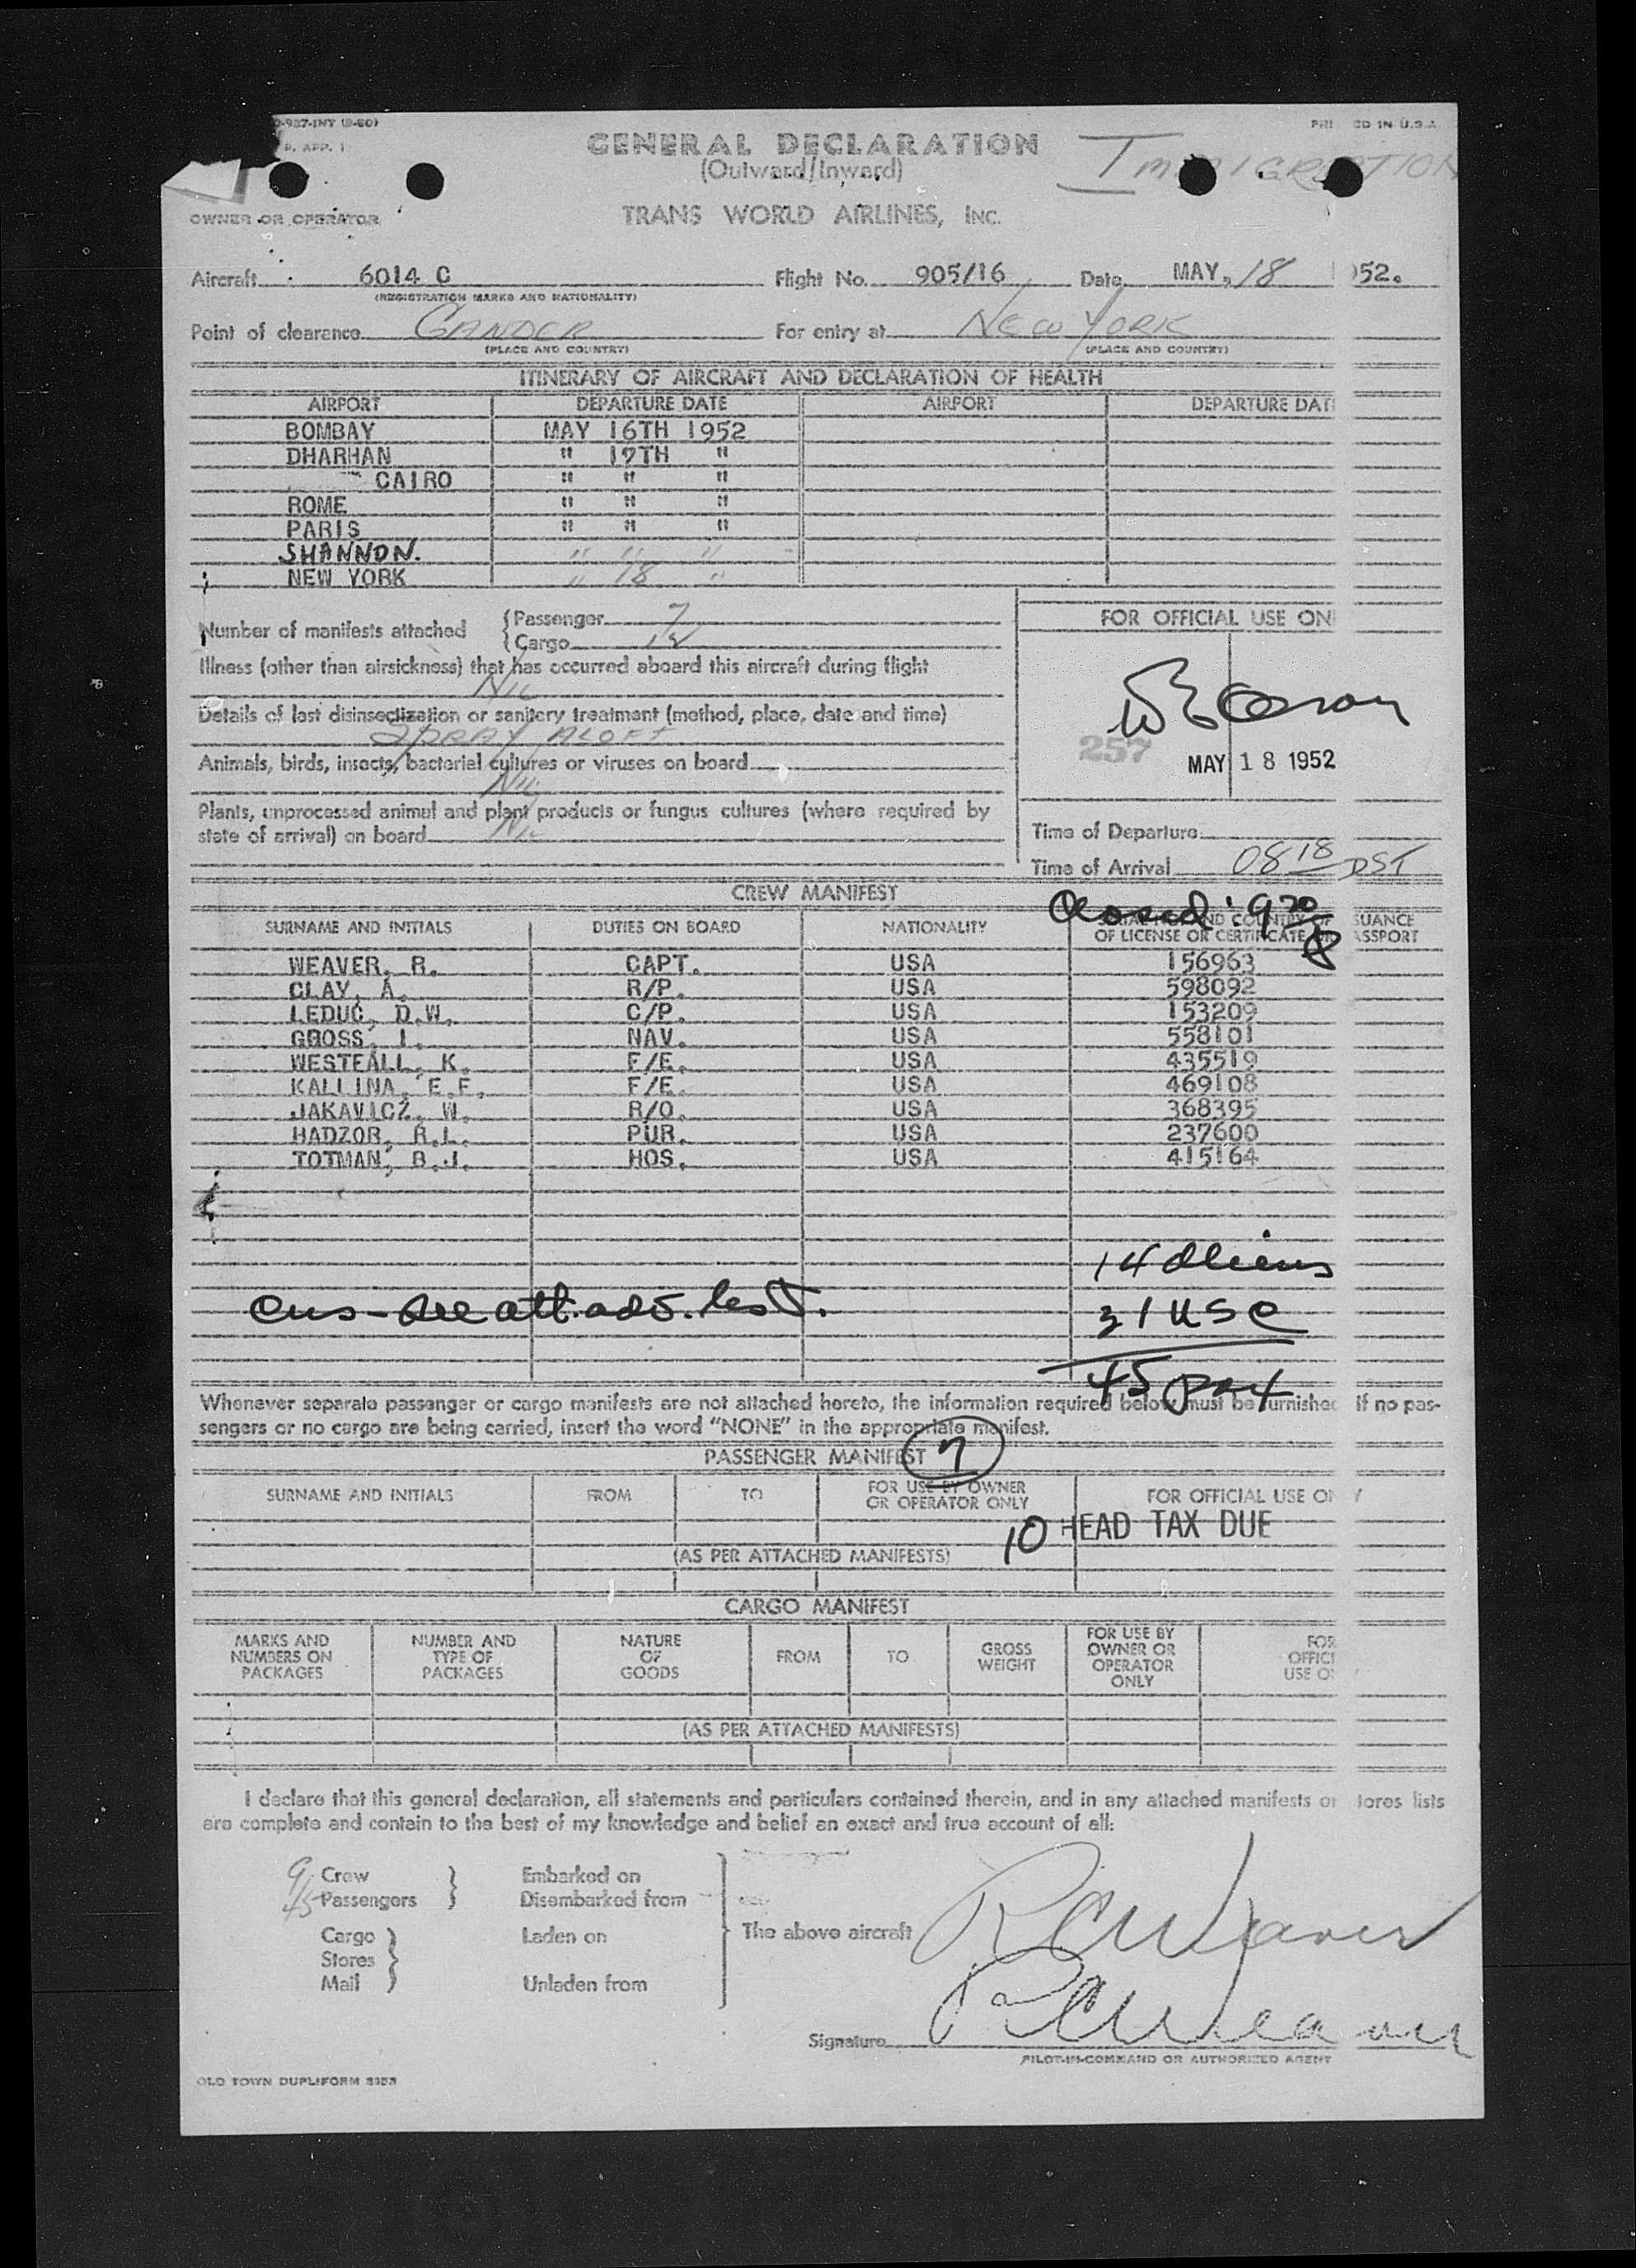 -987-INT (8-50)
PRI ED IN U.S.A.
P. APP. 1
GENERAL DECLARATION
IMMIGRATION
(Outward/Inward)
OWNER OR OPERATOR
TRANS WORLD AIRLINES, INC.
Aircraft 6014 C Flight No. 905/16 Date MAY. 18 952.
(REGISTRATION MARKS AND NATIONALITY)
Point of clearance GANDER For entry at NEW YORK
(PLACE AND COUNTRY) (PLACE AND COUNTRY)
ITINERARY OF AIRCRAFT AND DECLARATION OF HEALTH
AIRPORT DEPARTURE DATE AIRPORT DEPARTURE DAT
BOMBAY MAY 16TH 1952
DHARHAN " 17TH "
CAIRO " " "
ROME " " "
PARIS " " "
SHANNON. " " "
NEW YORK " 18 "
Number of manifests attached
{Passenger 7
{Cargo 12
Illness (other than airsickness) that has occurred aboard this aircraft during flight
NIL
Details of last disinsectization or sanitary treatment (method, place, date and time)
SPRAY ALOFT
Animals, birds, insects, bacterial cultures or viruses on board
NIL
Plants, unprocessed animal and plant products or fungus cultures (where required by
state of arrival) on board NIL
FOR OFFICIAL USE ON
257
MAY 18 1952
Time of Departure
Time of Arrival 0818 DST
CREW MANIFEST
Closed: 920
SURNAME AND INITIALS DUTIES ON BOARD NATIONALITY AND COUNTRY OF SUANCE
OF LICENSE OR CERTIFICATE OR ASSPORT
WEAVER, R. CAPT. USA 156963
CLAY, A. R/P. USA 598092
LEDUC, D.W. C/P. USA 153209
GROSS, I. NAV. USA 558101
WESTFALL, K. F/E. USA 435519
KALLINA, E.F. F/E. USA 469108
JAKAVICZ, W. R/O. USA 368395
HADZOR, R.L. PUR. USA 237600
TOTMAN, B.J. HOS. USA 415164
14 aliens
cus - see att. adv. list.
31 USC
45 pax
Whenever separate passenger or cargo manifests are not attached hereto, the information required below must be furnished If no pas-
sengers or no cargo are being carried, insert the word "NONE" in the appropriate manifest.
PASSENGER MANIFEST 7
SURNAME AND INITIALS FROM TO FOR USE BY OWNER OR OPERATOR ONLY FOR OFFICIAL USE ON Y
10 HEAD TAX DUE
(AS PER ATTACHED MANIFESTS)
CARGO MANIFEST
MARKS AND NUMBERS ON PACKAGES NUMBER AND TYPE OF PACKAGES NATURE OF GOODS FROM TO GROSS WEIGHT FOR USE BY OWNER OR OPERATOR ONLY FOR OFFICI USE O
(AS PER ATTACHED MANIFESTS)
I declare that this general declaration, all statements and particulars contained therein, and in any attached manifests or tores lists
are complete and contain to the best of my knowledge and belief an exact and true account of all:
9 Crew Embarked on
45 Passengers Disembarked from
Cargo Laden on The above aircraft RC Weaver
Stores
Mail Unladen from
Signature RC Weaver
PILOT-IN-COMMAND OR AUTHORIZED AGENT
OLD TOWN DUPLIFORM